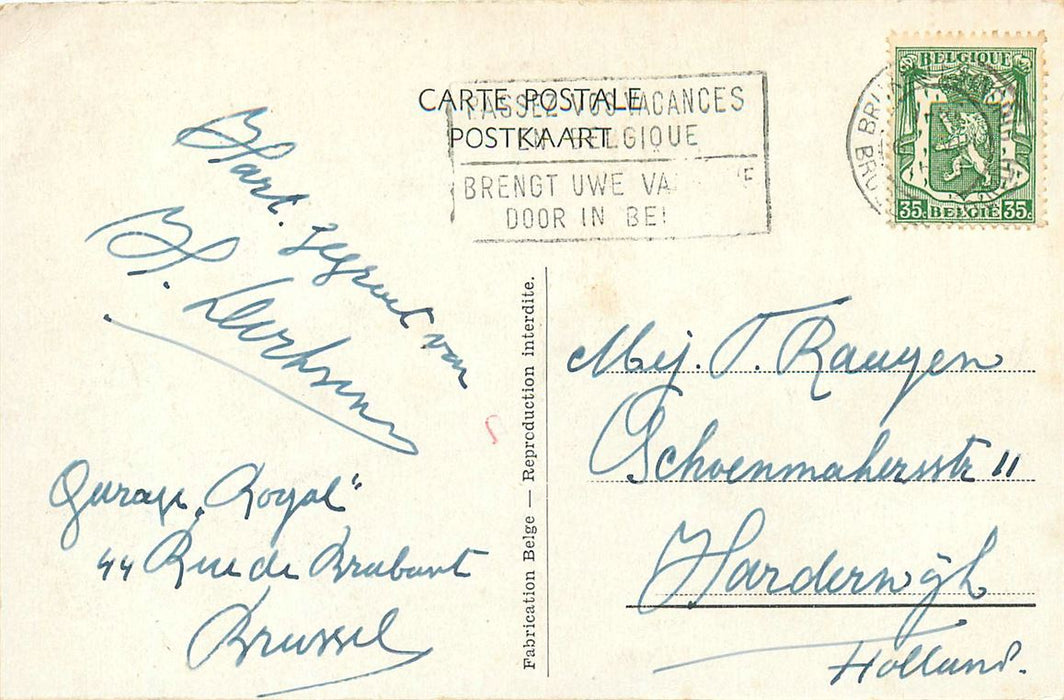 CARTE POSTALE
POSTKAART
PASSEZ VOS VACANCES
EN BELGIQUE
BRENGT UWE VA
DOOR IN BEL
BELGIQUE
35c BELGIË 35c
Hart. gegroet van
H.
Garage „Royal“
44 Rue de Brabant
Brussel
Fabrication Belge — Reproduction interdite.
Mej. T. Raugen
Schoenmakersstr 11
Harderwijk
Holland.